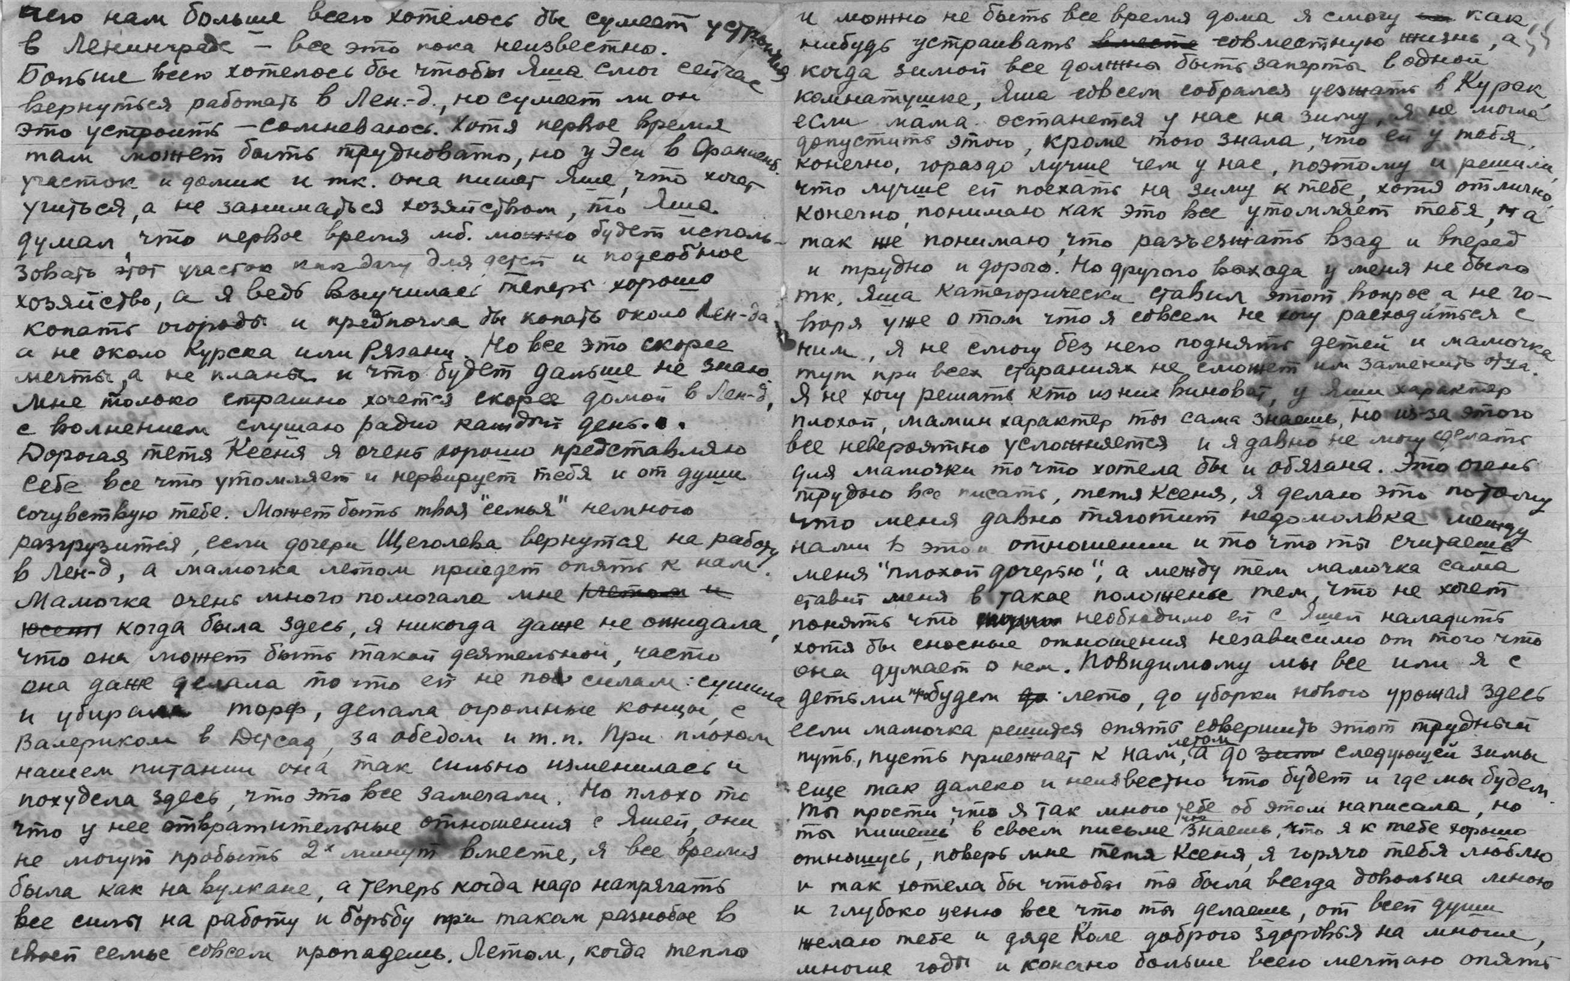 чего нам больше всего хотелось бы сумеет устроится
в Ленинграде – все это пока неизвестно.
Больше всего хотелось бы чтобы Яша смог сейчас
вернуться работать в Лен.-д., но сумеет ли он
это устроить – сомневаюсь. Хотя первое время
там может быть трудновато, но у Эси в Ораниенб.
участок и домик и тк. она пишет Яше, что хочет
учиться, а не заниматься хозяйством, то Яша
думал, что первое время мб. можно будет исполь-
зовать этот участок как дачу для детей и подсобное
хозяйство, а я ведь выучилась теперь хорошо
копать огороды и предпочла бы копать около Лен-да,
а не около Курска или Рязани. Но все это скорее
мечты, а не планы и что будет дальше не знаю
Мне только страшно хочется скорее домой в Лен-д,
с волнением слушаю радио каждый день...
Дорогая тетя Ксеня я очень хорошо представляю
себе все что утомляет и нервирует тебя и от души
сочувствую тебе. Может быть твоя "семья" немного
разгрузится, если дочери Щеголева вернутся на работу
в Лен-д, а мамочка летом приедет опять к нам.
Мамочка очень много помогала мне
когда была здесь, я никогда даже не ожидала,
что она может быть такой деятельной, часто
она даже делала то что ей не по силам: сушила
и убирала торф, делала огромные концы с
Валериком в Детсад, за обедом и т.п. При плохом
нашем питании она так сильно изменилась и
похудела здесь, что это все замечали. Но плохо то
что у нее отвратительные отношения с Яшей, они
не могут пробыть 2х минут вместе, я все время
была как на вулкане, а теперь когда надо напрягать
все силы на работу и борьбу при таком разнобое в
своей семье совсем пропадешь. Летом, когда тепло
и можно не быть все время дома я смогу как
нибудь устраивать вместе совместную жизнь, а
когда зимой все должны быть заперты в одной
комнатушке, Яша совсем собрался уезжать в Курск,
если мама останется у нас на зиму, я не могла
допустить этого, кроме того знала, что ей у тебя,
конечно, гораздо лучше чем у нас, поэтому и решили,
что лучше ей поехать на зиму к тебе, хотя отлично,
конечно, понимаю как это все утомляет тебя, а
так же понимаю, что разъезжать взад и вперед
и трудно и дорого. Но другого выхода у меня не было
тк. Яша категорически ставил этот вопрос, а не го-
воря уже о том что я совсем не хочу расходиться с
ним, я не смогу без него поднять детей и мамочка
тут при всех стараниях не сможет им заменить отца.
Я не хочу решать кто из них виноват, у Яши характер
плохой, мамин характер ты сама знаешь, но из-за этого
все невероятно усложняется и я давно не могу сделать
для мамочки то что хотела бы и обязана. Это очень
трудно все писать, тетя Ксеня, я делаю это потому
что меня давно тяготит недомолвка между
нами в этом отношении и то что ты считаешь
меня "плохой дочерью", а между тем мамочка сама
ставит меня в такое положенье тем, что не хочет
понять что необходимо ей с Яшей наладить
хотя бы сносные отношения независимо от того что
она думает о нем. Повидимому мы все или я с
детьми будем лето, до уборки нового урожая здесь
если мамочка решится опять совершить этот трудный
путь, пусть приезжает к нам летом, а до следующей зимы
еще так далеко и неизвестно что будет и где мы будем.
Ты прости, что я так много тебе об этом написала, но
ты пишешь в своем письме что знаешь, что я к тебе хорошо
отношусь, поверь мне тетя Ксеня, я горячо тебя люблю
и так хотела бы чтобы ты была всегда довольна мною
и глубоко ценю все что ты делаешь, от всей души
желаю тебе и дяде Коле доброго здоровья на многие,
многие годы и конечно больше всего мечтаю опять